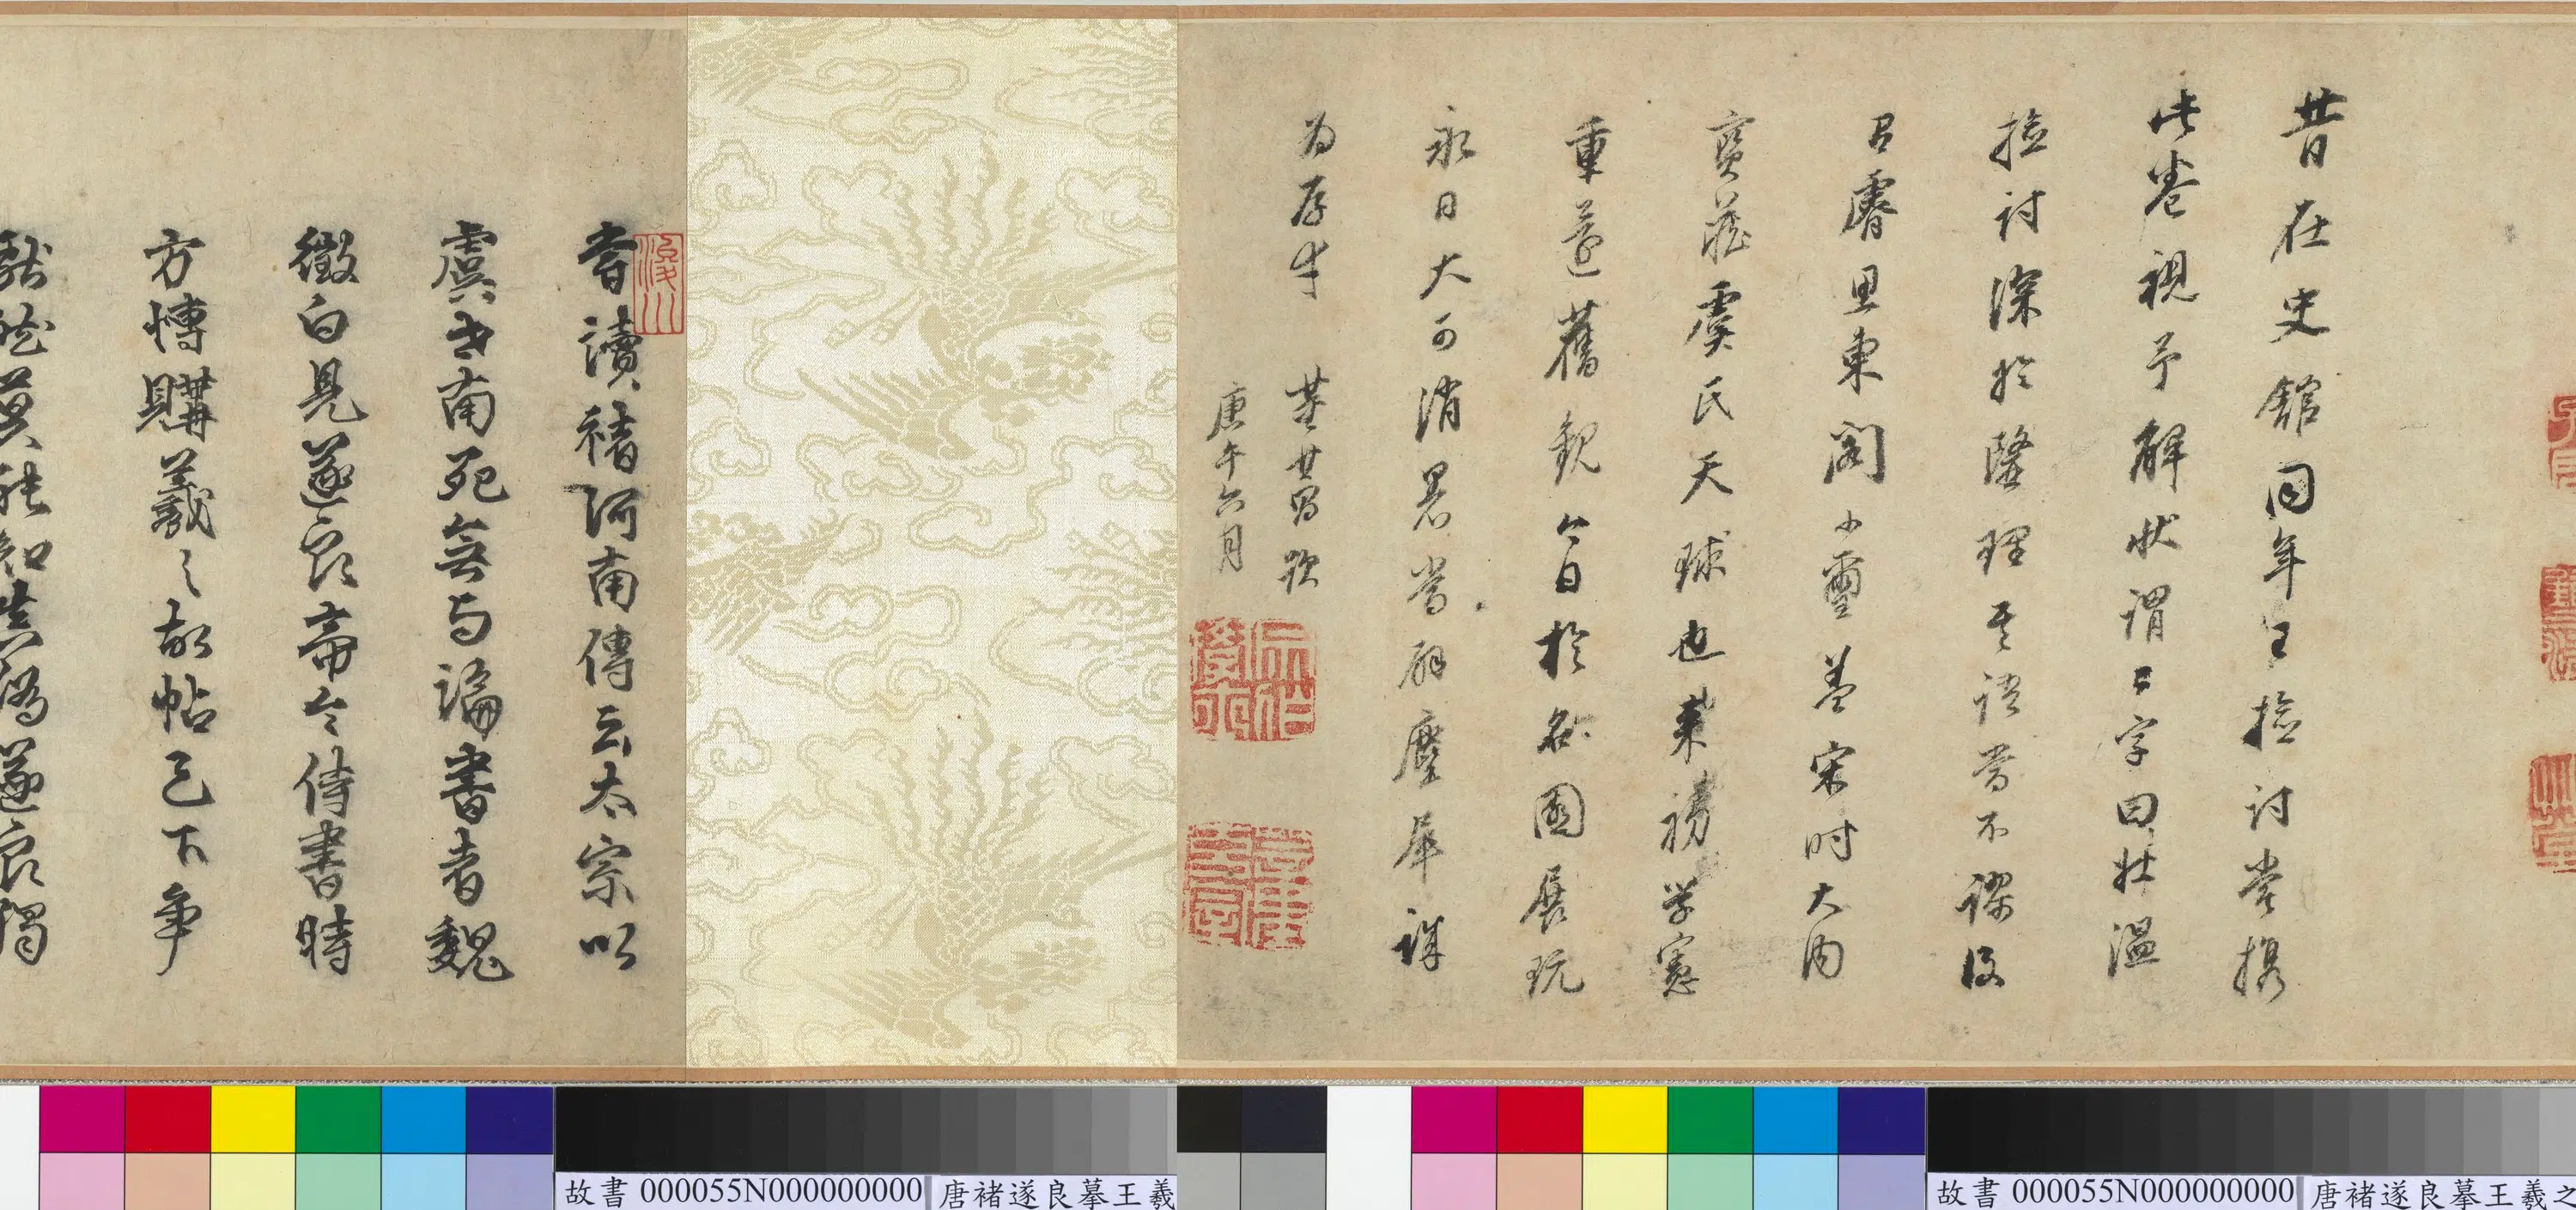 昔在史館同年王檢討嘗携
此卷視予解狀謂二字曰壯溫
檢討深於隆理其語當不謬後
有睿思東閣小璽蓋宋時大內
寶藏虞氏天球也米禊學憲
重莅舊觀今日於名園展玩
永日大可消暑當辟塵犀誰
為辟耳 董其昌跋
庚午六月
嘗讀褚河南傳云太宗以
虞世南死無與論書者魏
徵白見遂良帝令侍書時
方博購羲之故帖天下爭
獻然莫能知真偽遂良獨
浚川
故書 000055N000000000 唐褚遂良摹王羲
故書 000055N000000000 唐褚遂良摹王羲之